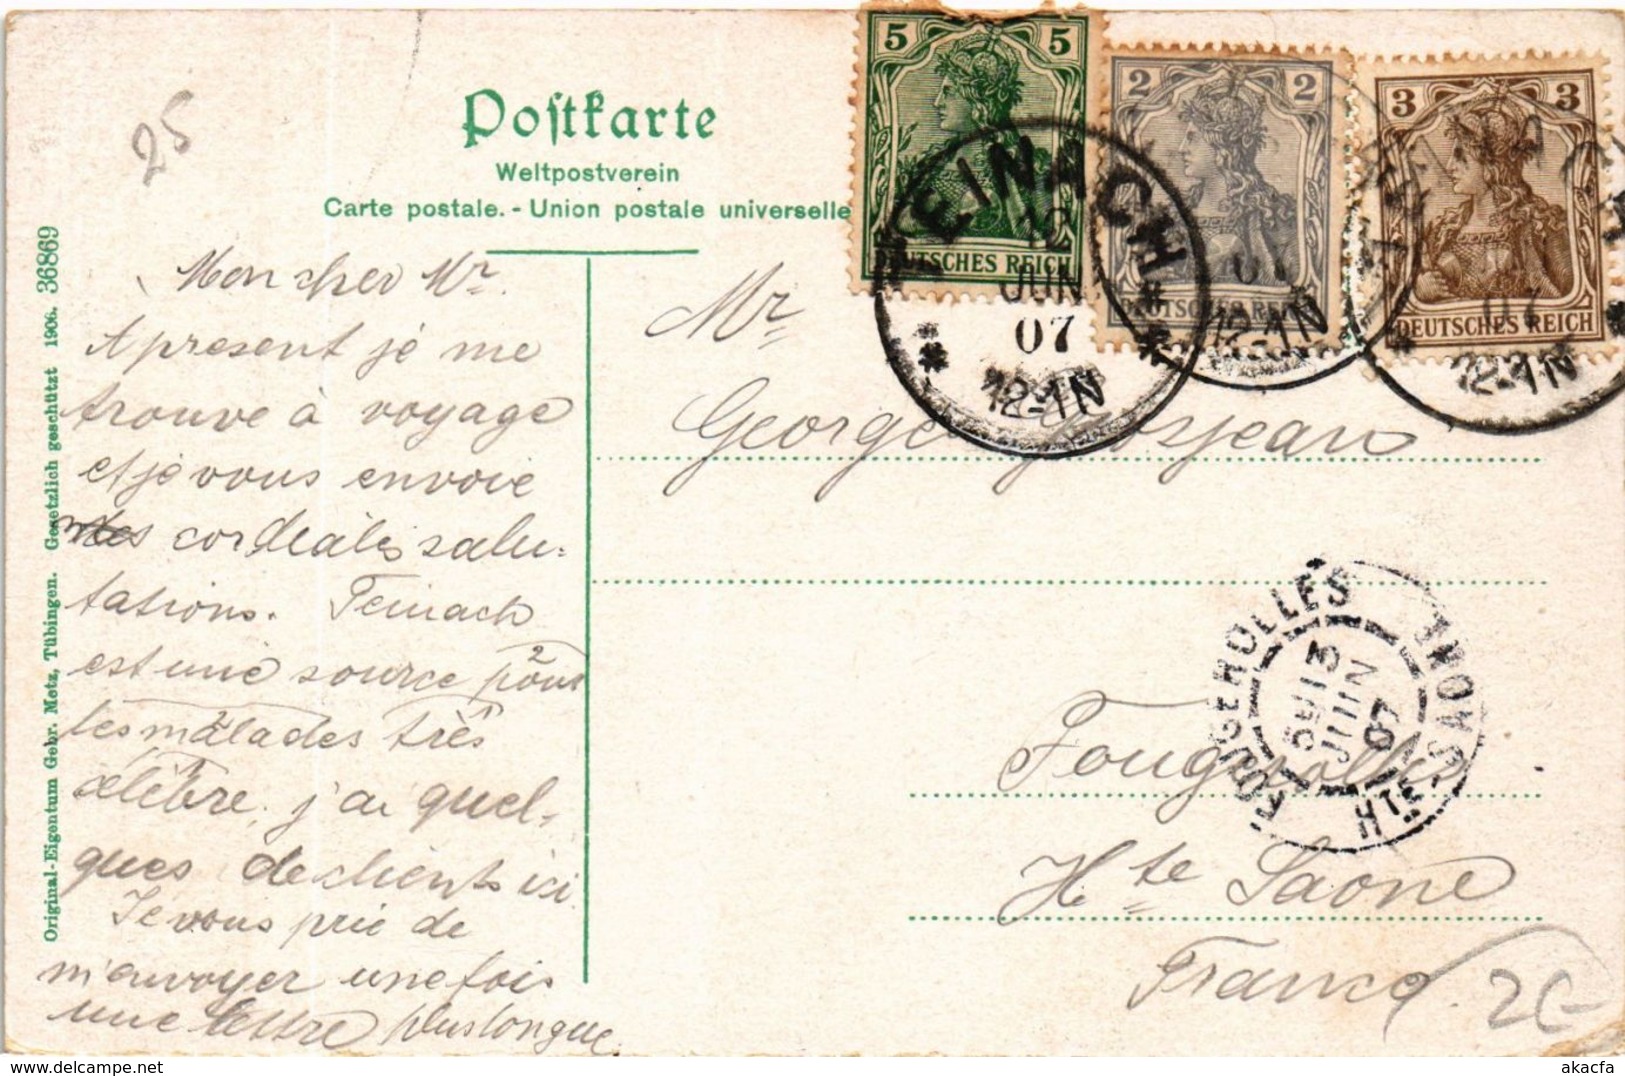 25
Postkarte
Weltpostverein
Carte postale. - Union postale universelle
5 5
DEUTSCHES REICH
2 2
DEUTSCHES REICH
3 3
DEUTSCHES REICH
TEINACH
12
JUN
07
12-1N
07
12-1N
07
12-1N
Original-Eigentum Gebr. Metz, Tübingen. Gesetzlich geschützt 1906. 36869
Mon cher Mr.
A present je me
trouve à voyage
et je vous envoie
mes cordiales salu-
tations. Teinach
est une source pour
les malades très
célèbre, j'ai quel-
ques de clients ici.
Je vous prie de
m'envoyer une fois
une lettre plus longue.
Mr
Georges Grosjean
Fougerolles
Hte Saone
France
FOUGEROLLES
13
JUIN
07
HTE-SAONE
akacfa